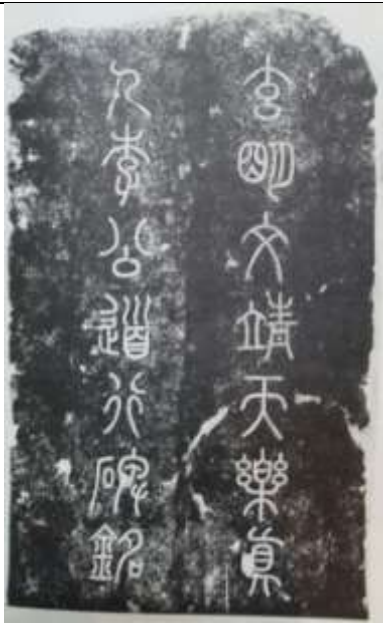 玄明文靖天樂真
人李公道行碑銘